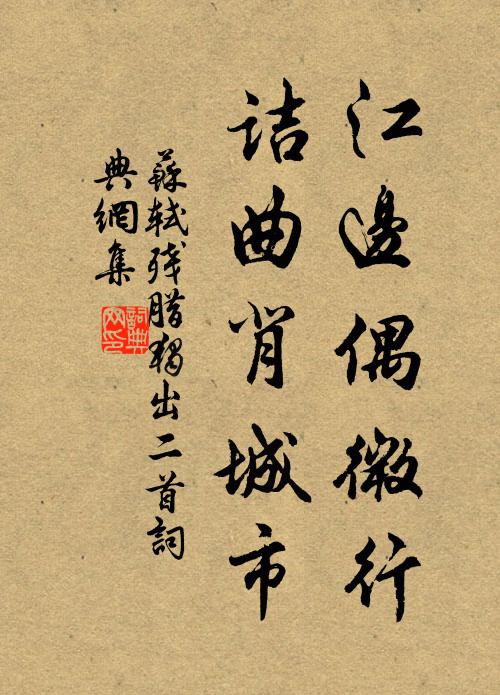 江邊偶微行
詰曲背城市
蘇軾残腊獨出二首詞
典網集
詞典
网印